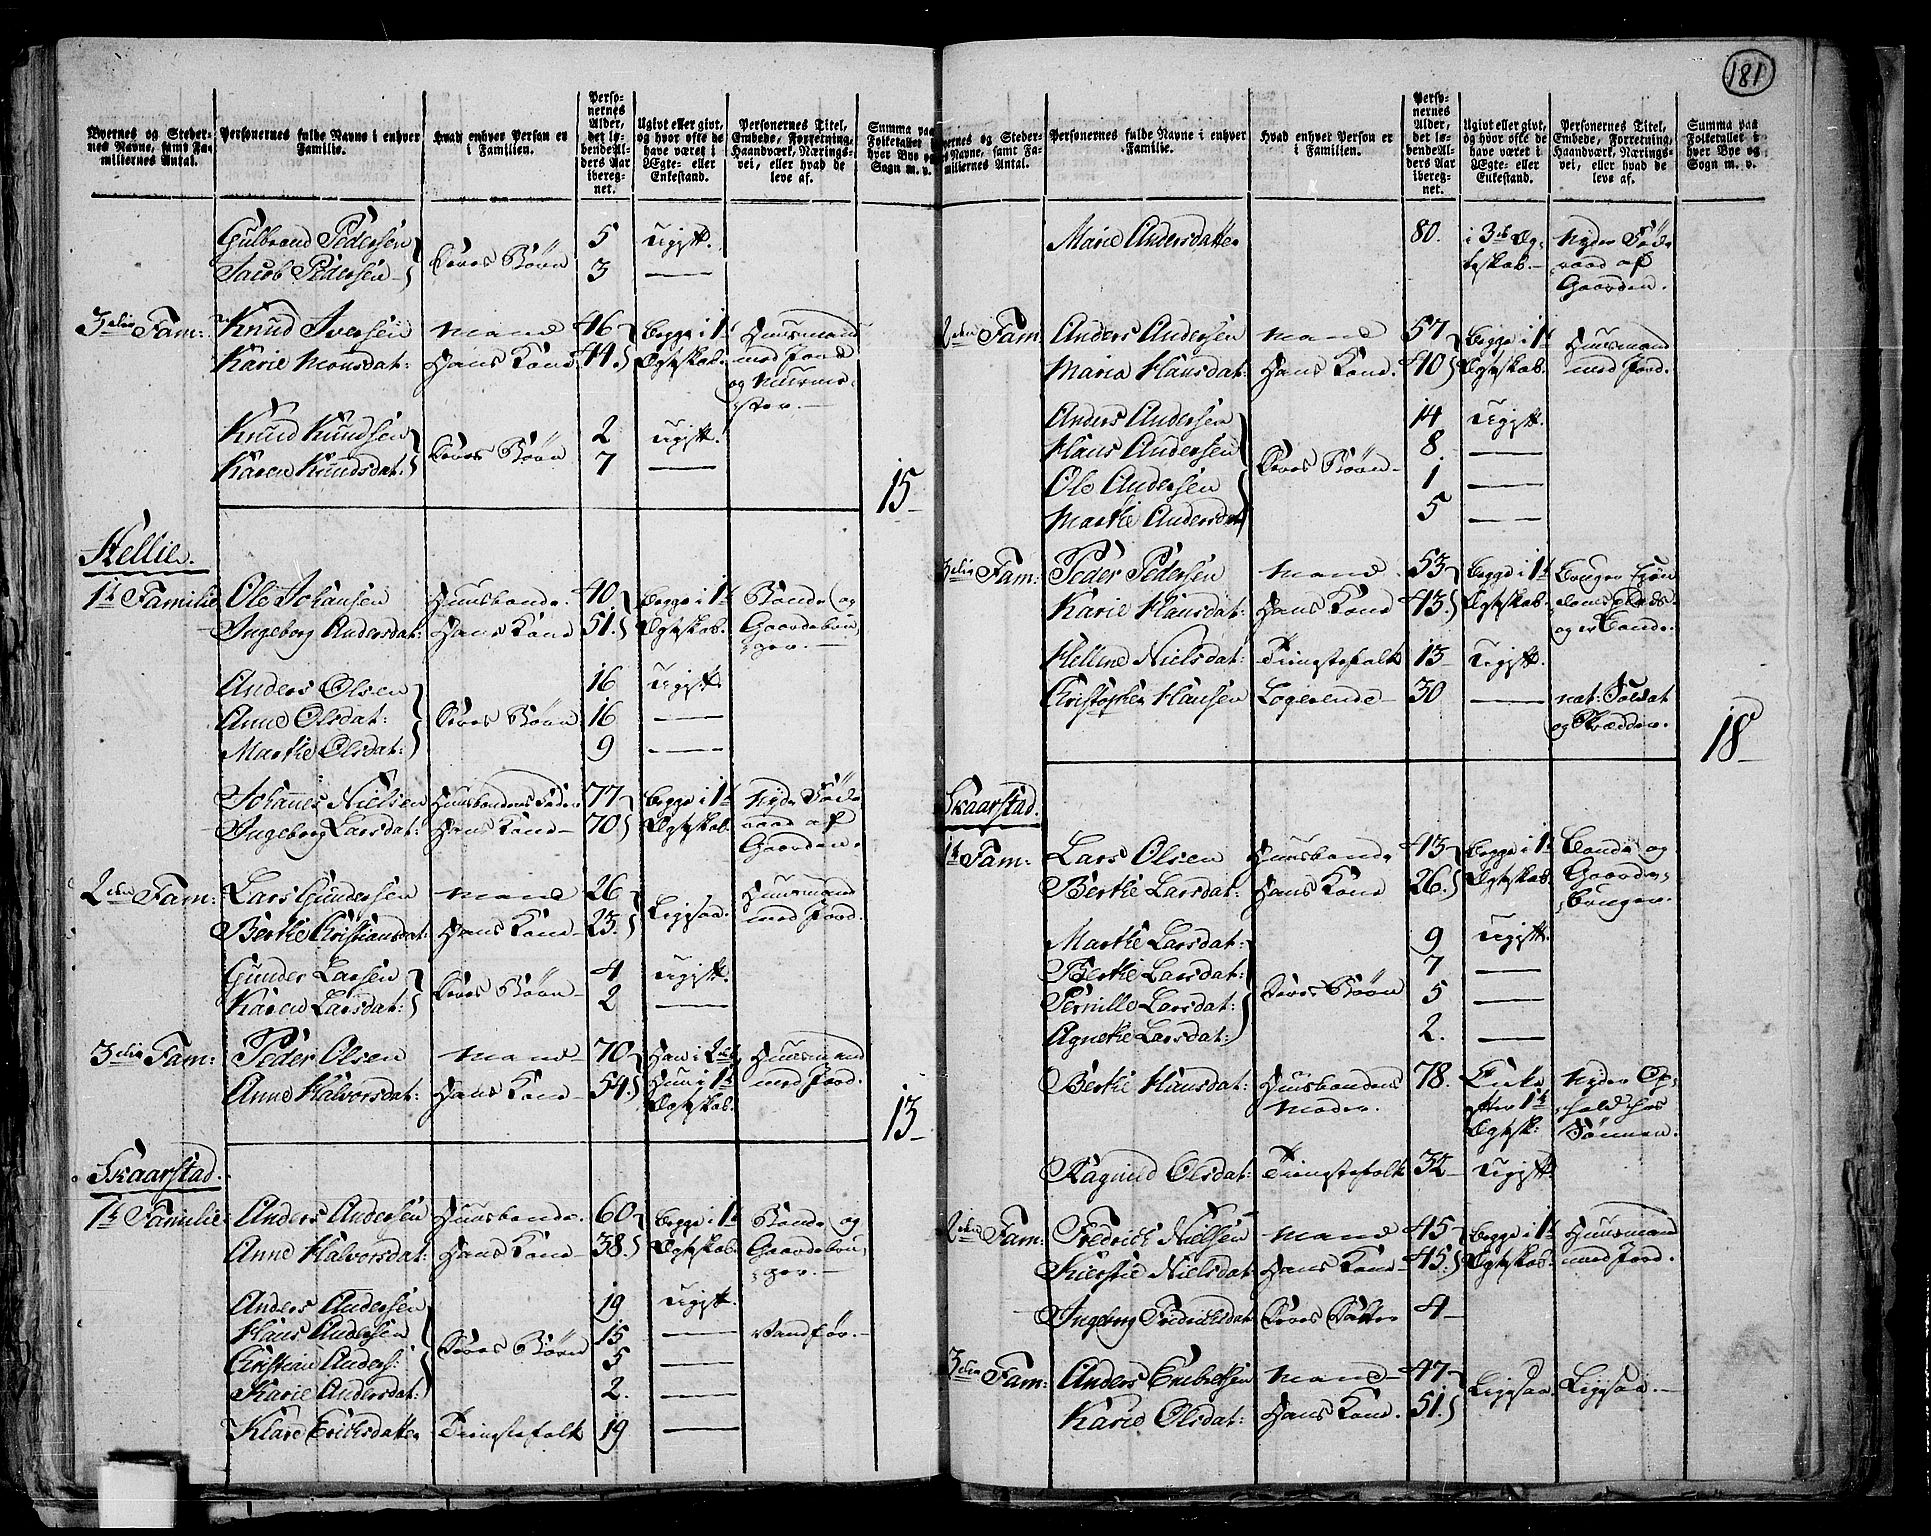 181
Byernes og Stedernes Navne, samt Familiernes Antal.
Personernes fulde Navne i enhver Familie.
Hvad enhver Person er i Familien.
Personernes Alder, det løbende Alders Aar iberegnet.
Ugivt eller givt, og hvor ofte de have været i Ægte- eller Enkestand.
Personernes Titel, Embede, Forretning, Haandværk, Næringsvei, eller hvad de leve af.
Summa paa Folketallet i hver Bye og Sogn m. v.
Gulbrand Pedersen } Deres Børn 5 Ugift.
Jacob Pedersen 3 —
3die Fam: Knud Iversen Mand 46 Begge i 1t Huusmand
Karie Monsdat: Hans Kone 44 Ægteskab. med Jord
og Muurme-
ster.
Knud Knudsen } Deres Børn 2 Ugift.
Karen Knudsdat: 7 —
15
Hellie.
1te Familie Ole Johansen Huusbonde. 40 Begge i 1t Bonde og
Ingeborg Andersdat: Hans Kone 51. Ægteskab. Gaardebru-
ger.
Anders Olsen 16 Ugift
Anne Olsdat: } Deres Børn 16 —
Marthe Olsdat: 9 —
Johannes Nielsen Huusbondens Fader 77 Begge i 1t Nyder Føde-
Ingeborg Larsdat: Hans Kone 70 Ægteskab. raad af
Gaarden.
2den Fam: Lars Gundersen Mand 26 Ligesaa. Huusmand
Berthe Christiansdat: Hans Kone 23. med Jord.
Gunder Larsen } Deres Børn 4 Ugift.
Karen Larsdat: 2 —
3die Fam: Peder Olsen Mand 70 Han i 2det Huusmand
Anne Halvorsdat: Hans Kone 54. Hun i 1t med Jord.
Ægteskab.
13
Skaarstad.
1te Familie Anders Andersen Huusbonde. 60 Begge i 1t Bonde og
Anne Halvorsdat: Hans Kone 38. Ægteskab. Gaardebru-
ger.
Anders Andersen 19 Ugift.
Hans Andersen } Deres Børn 15 — Vanfør.
Christian Anders: 5 —
Karie Andersdat: 2. —
Klare Erichsdatter Tienestefolk 19 —
Byernes og Stedernes Navne, samt Familiernes Antal.
Personernes fulde Navne i enhver Familie.
Hvad enhver Person er i Familien.
Personernes Alder, det løbende Alders Aar iberegnet.
Ugivt eller givt, og hvor ofte de have været i Ægte- eller Enkestand.
Personernes Titel, Embede, Forretning, Haandværk, Næringsvei, eller hvad de leve af.
Summa paa Folketallet i hver Bye og Sogn m. v.
Marie Andersdatter 80. i 3de Æg- Nyder Føde-
teskab. raad af
Gaarden.
2den Fam Anders Andersen Mand 57 Begge i 1t Huusmand
Maria Hansdat: Hans Kone. 40 Ægteskab. med Jord.
Anders Andersen 14 Ugift.
Hans Andersen } Deres Børn 8. —
Ole Andersen 1 —
Marthe Andersdat 5 —
3die Fam: Peder Pedersen Mand 53 Begge i 1t Bruger Eien-
Karie Hansdat: Hans Kone 43. Ægteskab. doms Plads
og er Bonde.
Hellene Nielsdat: Tienestefolk 13 Ugift.
Christopher Hansen Logerende 30 — nat: Soldat
og Skrædder.
18
Skaarstad.
1te Fam: Lars Olsen Huusbonde 43 Begge i 1t Bonde og
Berthe Larsdat: Hans Kone 26. Ægteskab. Gaarde-
bruger.
Marthe Larsdat: 9 Ugift.
Berthe Larsdat: } Deres Børn 7 —
Pernille Larsdat: 5 —
Agnethe Larsdat: 2. —
Berthe Hansdat: Huusbondens 78. Enke Nyder Op-
Moder. efter 1te hold hos
Ægtesk: Sønnen.
Ragnild Olsdat: Tienestefolk 32 Ugift
2den Fam: Fredrich Nielsen Mand 45 Begge i 1t Huusmand
Kierstie Nielsdat Hans Kone 45. Ægteskab. med Jord.
Ingeborg Fredrichsdat Deres Datter 4
3die Fam: Anders Embretsen Mand 47 Ligesaa Ligesaa.
Karie Olsdat: Hans Kone. 51.